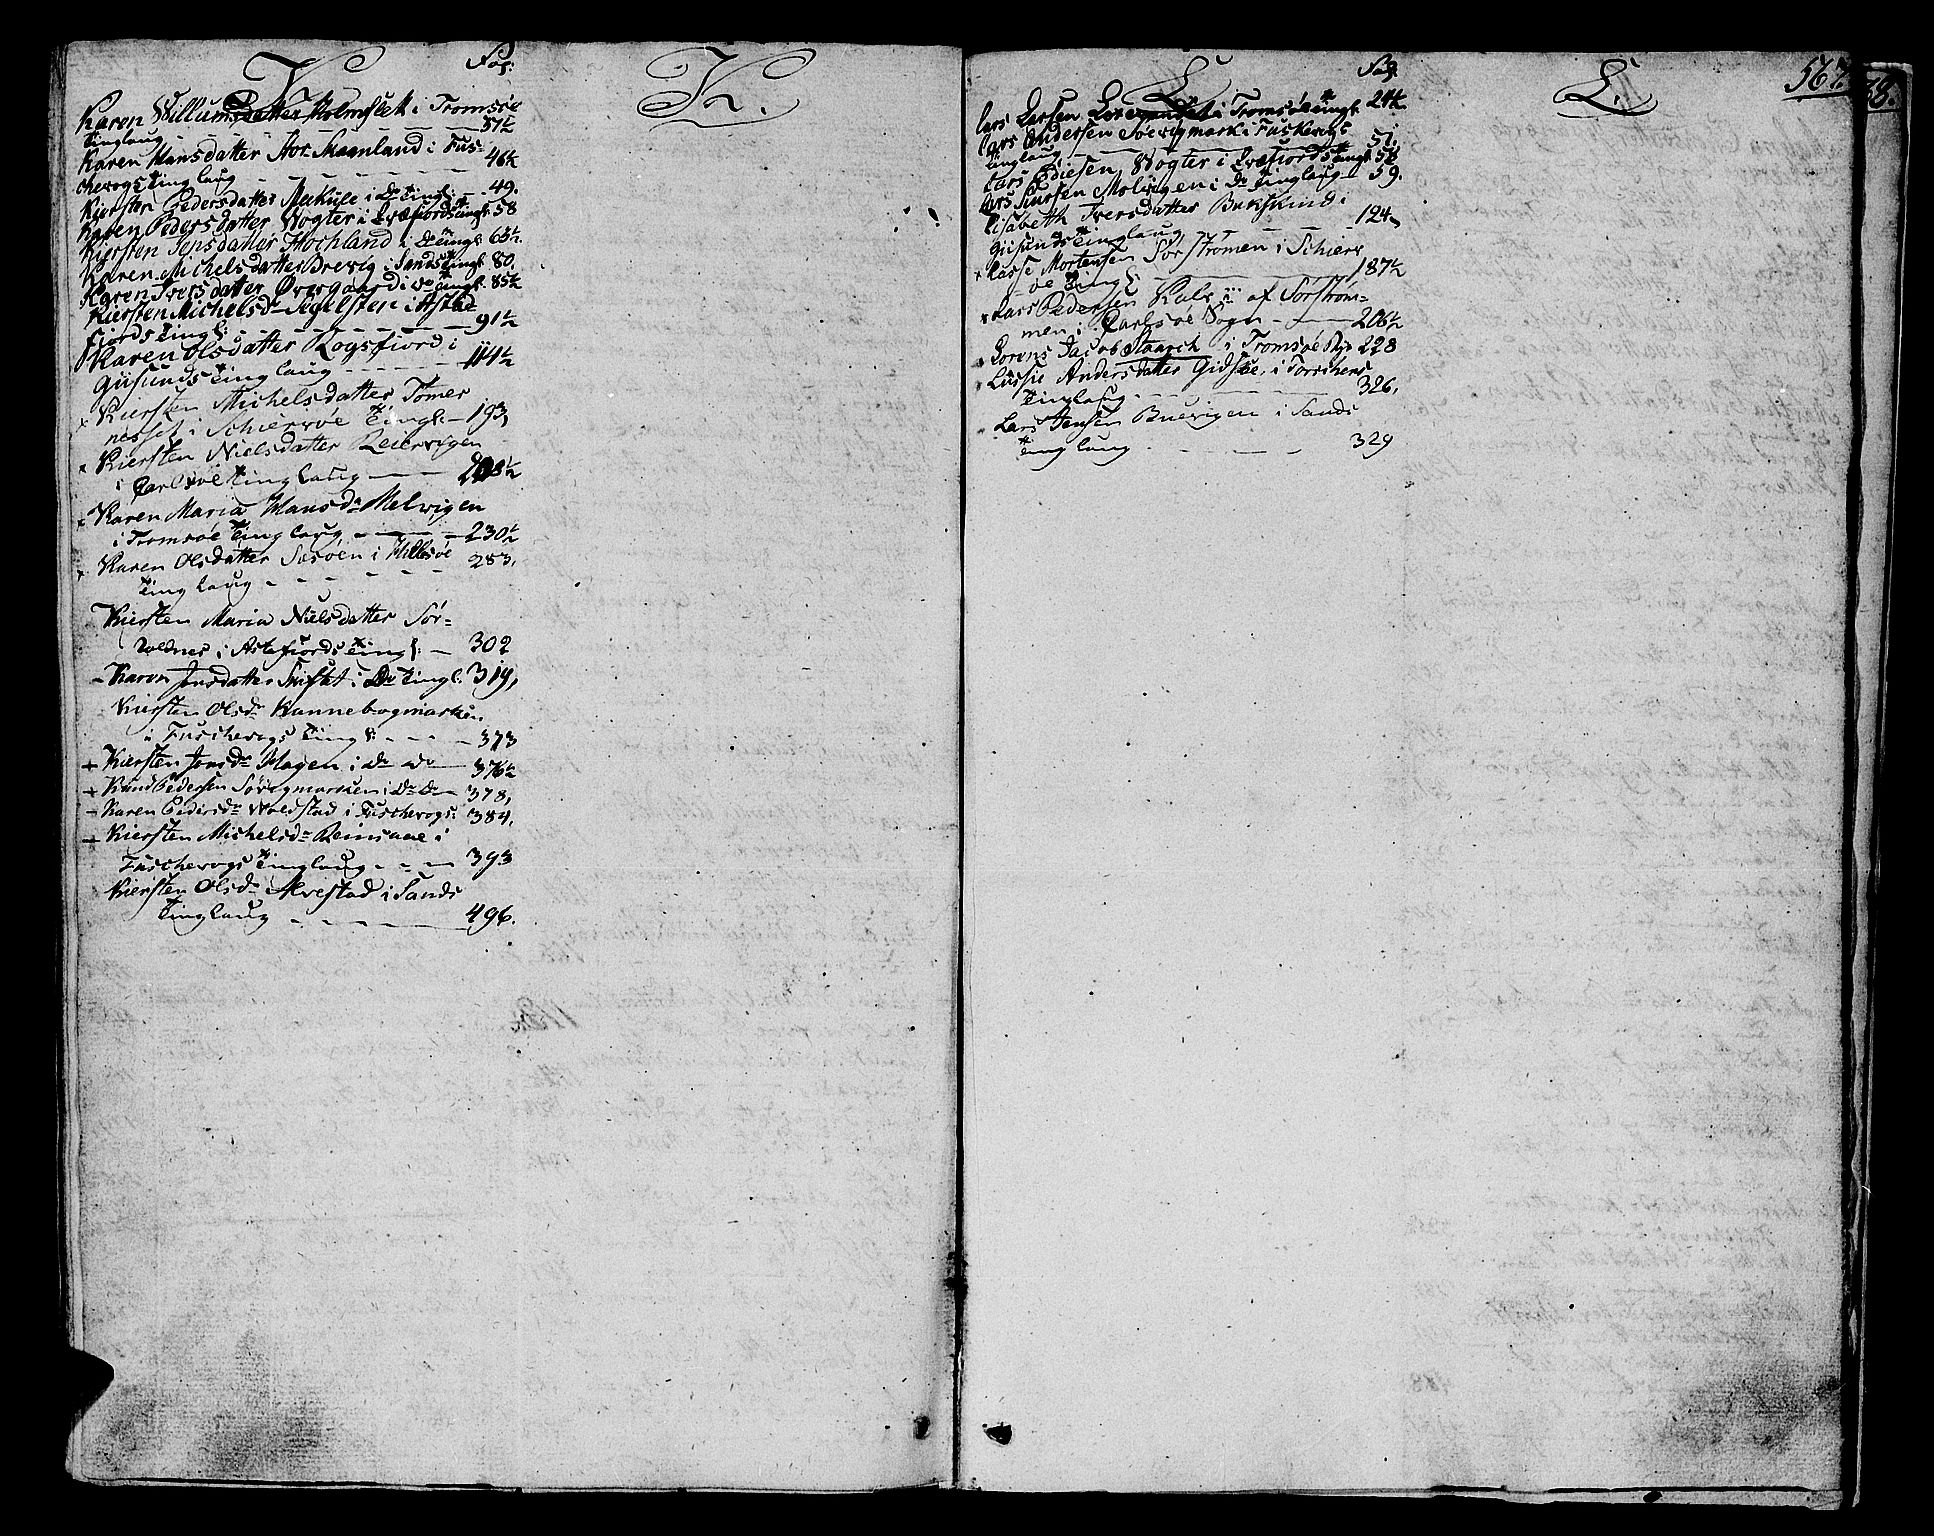 K Pag:
K.
Karen Willumsdatter Holmslet i Tromsøe
Tinglaug 37½
Karen Hansdatter Stor Maanland i Fus-
chevogs Tinglaug 46½
Kiersten Pedersdatter i Do Tingl: 49.
Karen Pedersdatter Wogter i Qvæfiords Tingl: 58
Kiersten Jensdatter Hochland i Do Tingl: 63½
Karen Michelsdatter Brevig i Sands Tingl: 80.
Karen Iversdatter Øvergaard i Do Tingl: 85½
Kiersten Michelsd: Segelsten i Astæ-
fiords Tingl: 91½
Karen Olsdatter Rogsfiord i
Giisunds Tinglaug 114½
× Kiersten Michelsdatter Tømer
nesset i Schiervøe Tingl: 193
× Kiersten Nielsdatter Reiervigen
i Carlsøe Tinglaug
× Karen Maria Hansd: Melvigen
i Tromsøe Tinglaug 230½
× Karen Olsdatter Sasøen i Hillesøe 283.
Tinglaug
- Kiersten Maria Nielsdatter Sør-
Roldnes i Astafiords Tingl: 302
- Karen Jonsdatter i Do Tingl: 319,
Kiersten Olsd: Kannebogmarken
i Fuschevogs Tingl: 373
+ Kiersten Jonsd: Hagen i do do 376½
+ Knud Pedersen Sørvigmarken i Do Do 378,
- Karen Pedersd: Woldstad i Fuschevogs: 384.
+ Kiersten Michelsd: Reinsaae i
Fuschevogs Tinglaug 393
Kiersten Olsd: Alvestad i Sands
Tinglaug 496.
L Pag.
L.
567.
Lars Larsen i Tromsøe Tingl: 24½
Lars Andersen Sørvigmark i Fuskevogs
Tinglaug 51.
Lars Ediesen Wogter i Qvæfiords Tingl: 58
Lars Siursen Molvigen i Do Tinglaug 59.
Lisabeth Iversdatter Bukskind i
Giisunds Tinglaug 124
× Lasse Mortensen Sør Strømen i Schier-
vøe Tingl: 187½
× Lars Pedersen af Sørstrøm-
men i Carlsøe Sogn 206½
× Lorens Jacob Staarck i Tromsøe Bye 228
Lussie Andersdatter Gidsøe i Torschens
Tinglaug 326,
- Lars Jensen Buevigen i Sands
Tinglaug 329